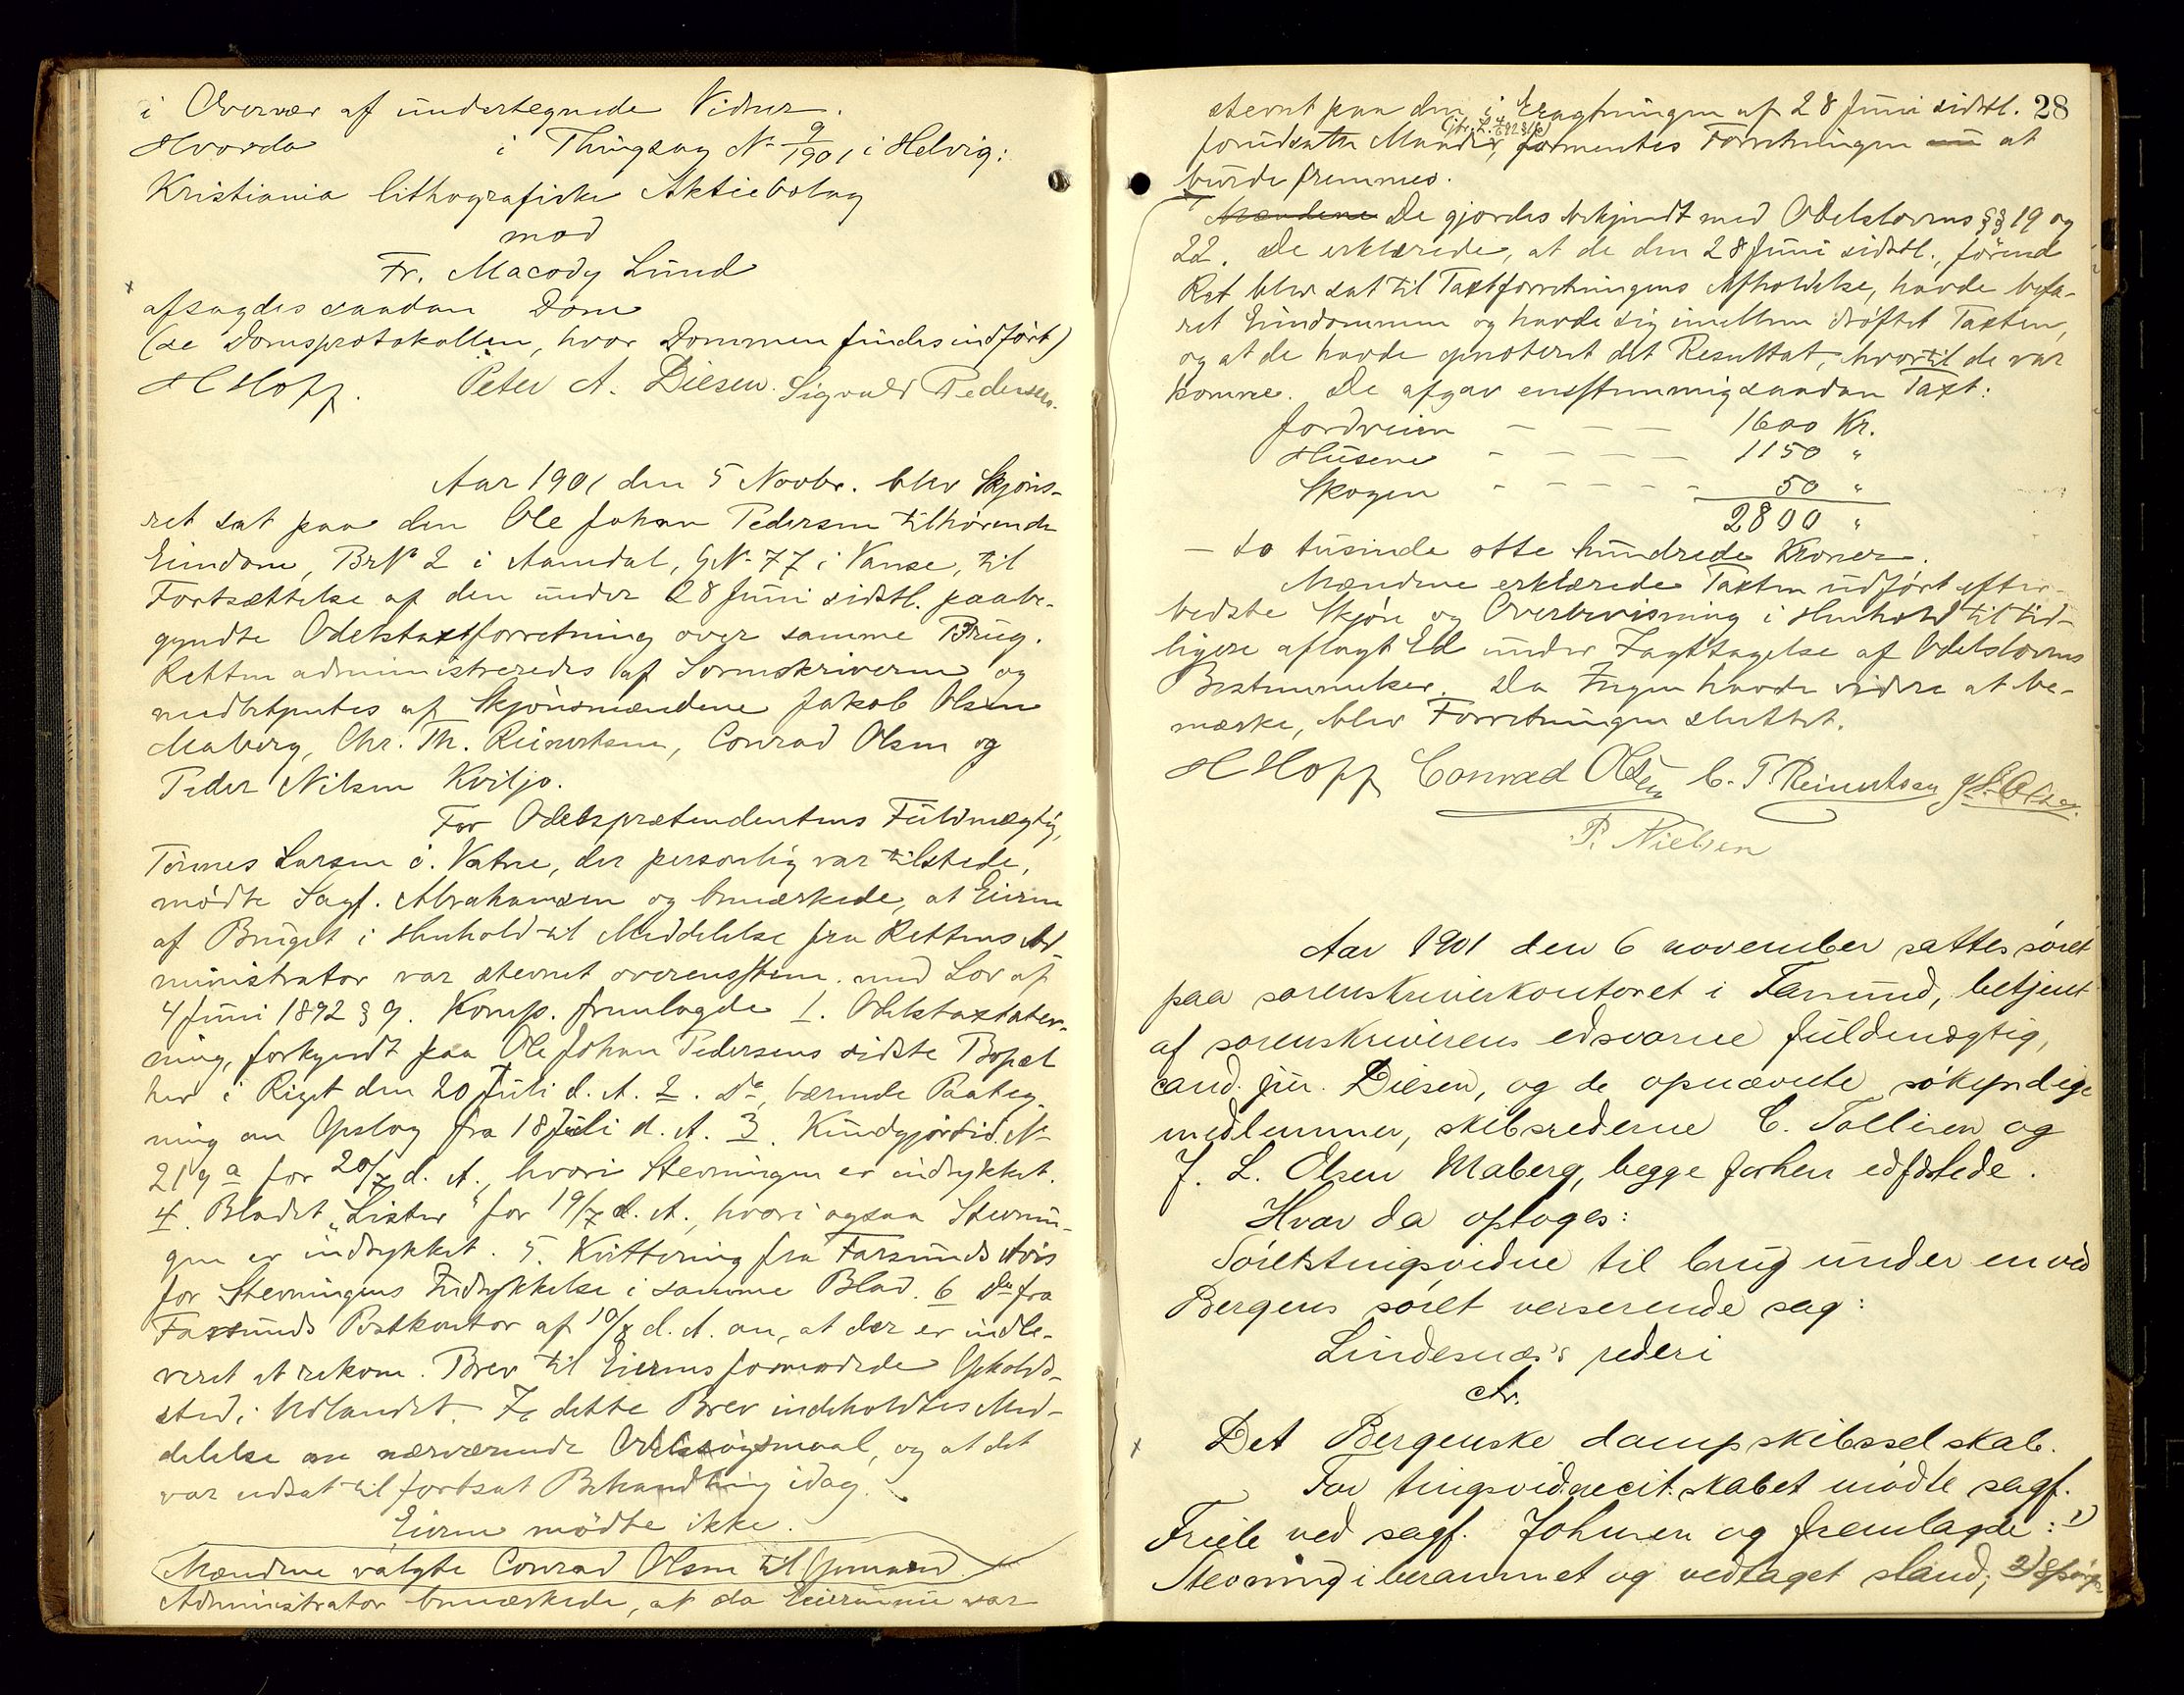 i Overvær af undertegnede Vidner.
Hvorda i Thingsag No 9/1901 i Helvig:
Kristiania lithografiske Aktiebolag
mod
Fr. Macody Lund
afsagdes saadan Dom
(se Domsprotokollen, hvor Dommen findes indført)
H Hopp. Peter A. Diesen. Sigvald Pedersen.
Aar 1901 den 5 Novbr. blev Skjøns-
ret sat paa den Ole Johan Pedersen tilhørende
Eiendom, BrNo 2 i Aamdal, GNo 77 i Vanse, til
Fortsættelse af den under 28 Juni sidstl. paabe-
gyndte Odelstaxtforretning over samme Brug.
Retten administreredes af Sorenskriveren og
medbetjentes af Skjønsmændene Jakob Olsen
Maberg, Chr. Th. Reinertsen, Conrad Olsen og
Peder Nilsen Kviljo.
For Odelsprætendentens Fuldmægtig,
Tønnes Larsen ö. Vatne, der personlig var tilstede,
mødte Sagf. Abrahamsen og bemærkede, at Eieren
af Bruget i Henhold til Meddelelse fra Rettens Ad-
ministrator var stevnet overensstem. med Lov af
4 Juni 1892 § 9. Komp. fremlagde 1. Odelstaxtstev-
ning, forkyndt paa Ole Johan Pedersens sidste Bopæl
her i Riget den 20 Juli d. A. 2. Do, bærende Paateg-
ning om Opslag fra 18 Juli d. A. 3. Kundgjørtid. No
219 a for 20/7 d. A., hvori Stevningen er indrykket.
4. Bladet "Lister" for 19/7 d. A., hvori ogsaa Stevnin-
gen er indrykket. 5. Kvittering fra Farsunds Avis
for Stevningens Indrykkelse i samme Blad. 6 Do fra
Farsunds Postkontor af 10/8 d. A. om, at der er indle-
veret et rekom. Brev til Eierens formodede Opholds-
sted i Udlandet. I dette Brev indeholdtes Med-
delelse om nærværende Odelssøgsmaal, og at det
var udsat til fortsat Behandling idag.
Eieren mødte ikke.
Mændene valgte Conrad Olsen til Formand.
Administrator bemærkede, at da Eieren nu var
28
stevnt paa den i Eragtningen af 28 Juni sidstl.
forudsatte Maade, formentes Forretningen nu at
burde fremmes.
Mændene De gjordes bekjendt med Odelslovens §§ 19 og
22. De erklærede, at de den 28 Juni sidstl., førend
Ret blev sat til Taxtforretningens Afholdelse, havde befa-
ret Eiendommen og havde sig imellem drøftet Taxten,
og at de havde opnoteret det Resultat, hvortil de var
komne. De afgav enstemmig saadan Taxt:
Jordveien - - - 1600 Kr.
Husene - - - - 1150 "
Skogen - - - - - 50 "
2800 "
- to tusinde otte hundrede Kroner.
Mændene erklærede Taxten udført efter
bedste Skjøn og Overbevisning i Henhold til tid-
ligere aflagt Ed under Iagttagelse af Odelslovens
Bestemmelser. Da Ingen havde videre at be-
mærke, blev Forretningen sluttet.
H Hopp Conrad Olsen C. T. Reinertsen J. L. Olsen.
P. Nielsen
Aar 1901 den 6 november sattes søret
paa sorenskriverkontoret i Farsund, betjent
af sorenskriverens edsvorne fuldmægtig,
cand. jur. Diesen, og de opnævnte søkyndige
medlemmer, skibsrederne C. Tollisen og
J. L. Olsen Maberg, begge forhen edfæstede.
Hvor da optoges:
Søretstingsvidne til brug under en ved
Bergens søret verserende sag:
Lindesnæs's rederi
ctr.
Det Bergenske dampskibsselskab.
For tingsvid.recit. skabet mødte sagf.
Friele ved sagf. Johnsen og fremlagde: 1)
Stevning i berammet og vedtaget stand; 2) Spørgs-